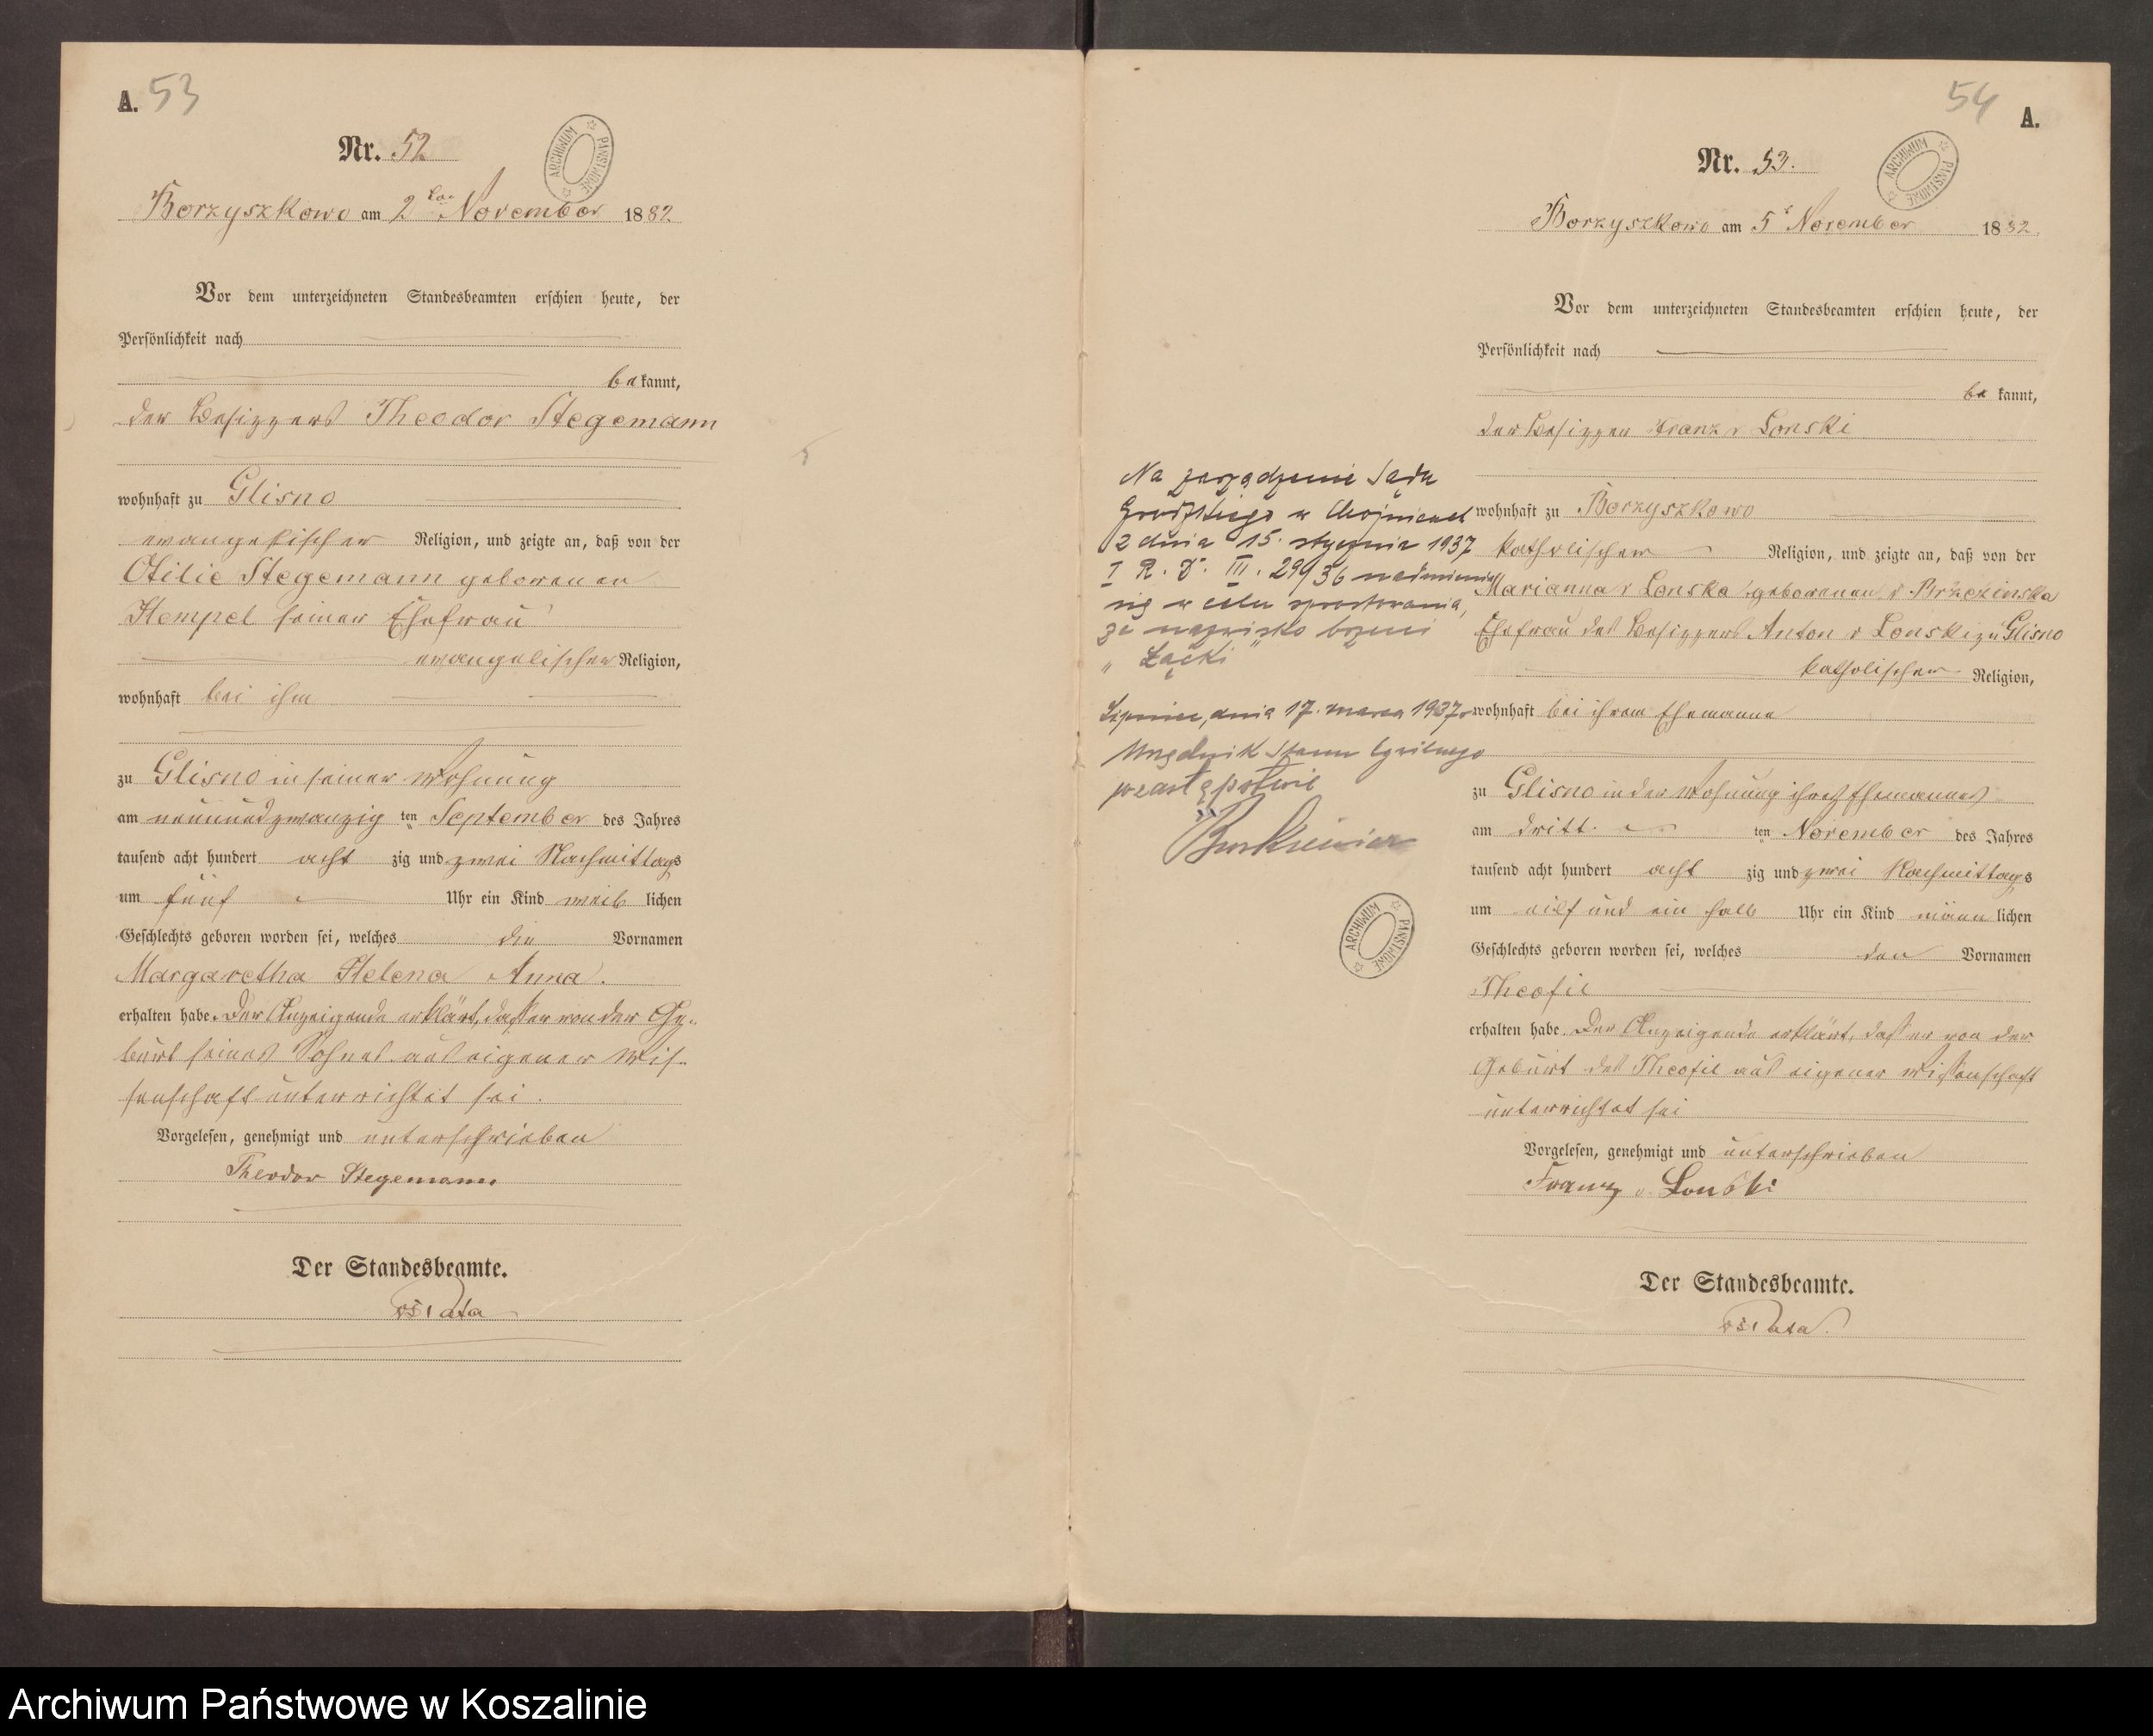 A. 53
Nr. 52
ARCHIWUM PAŃSTWOWE
Borzyszkowo am 2ten November 1882
Vor dem unterzeichneten Standesbeamten erschien heute, der
Persönlichkeit nach
bekannt,
der Besizzers Theodor Stegemann
wohnhaft zu Glisno
evangelischer Religion, und zeigte an, daß von der
Otilie Stegemann geborenen
Hempel seiner Ehefrau
evangelischer Religion,
wohnhaft bei ihm
zu Glisno in seiner Wohnung
am neunundzwanzig ten September des Jahres
tausend acht hundert acht zig und zwei Nachmittags
um fünf Uhr ein Kind weib lichen
Geschlechts geboren worden sei, welches die Vornamen
Margaretha Helena Anna.
erhalten habe. Der Anzeigende erklärt, daß er von der Ge-
burt seines Sohnes aus eigener Wis-
senschaft unterrichtet sei.
Vorgelesen, genehmigt und unterschrieben
Theodor Stegemann
Der Standesbeamte.
54 A.
Nr. 53.
ARCHIWUM PAŃSTWOWE
Borzyszkowo am 5t November 1882
Vor dem unterzeichneten Standesbeamten erschien heute, der
Persönlichkeit nach
be kannt,
der Besizzer Franz v Lonski
wohnhaft zu Borzyszkowo
katholischer Religion, und zeigte an, daß von der
Marianna v Lonska geborenen v Brzezinska
Ehefrau des Besizzers Anton v Lonski zu Glisno
katholischer Religion,
wohnhaft bei ihrem Ehemanne
zu Glisno in der Wohnung ihres Ehemannes
am dritt ten November des Jahres
tausend acht hundert acht zig und zwei Nachmittags
um eilf und ein halb Uhr ein Kind männ lichen
Geschlechts geboren worden sei, welches den Vornamen
Theofil
erhalten habe. Der Anzeigende erklärt, daß er von der
Geburt des Theofil aus eigener Wissenschaft
unterrichtet sei
Vorgelesen, genehmigt und unterschrieben
Franz v. Lonski
Der Standesbeamte.
Na zarządzenie Sądu
Grodzkiego w Chojnicach
z dnia 15. stycznia 1937
I R. J. III. 299/36 nadmienia
się w celu sprostowania,
że nazwisko brzmi
„Łącki"
Lipnica, dnia 17. marca 1937 r.
Urzędnik Stanu Cywilnego
w zastępstwie
ARCHIWUM PAŃSTWOWE
Archiwum Państwowe w Koszalinie